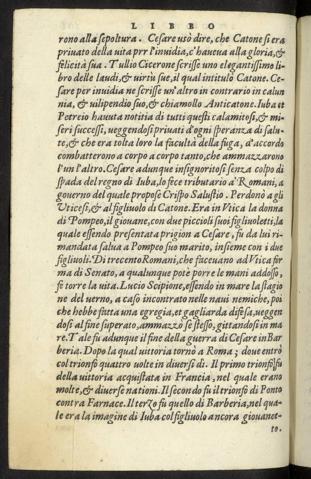 LIBRO
rono alla sepoltura. Cesare usò dire, che Catone si era
priuato della vita per l'inuidia, c'haueua alla gloria, &
felicità sua. Tullio Cicerone scrisse uno elegantissimo li-
bro delle laudi, & virtù sue, il qual intitulò Catone. Ce-
sare per inuidia ne scrisse un'altro in contrario in calun
nia, & uilipendio suo, & chiamollo Anticatone. Iuba et
Petreio hauuta notitia di tutti questi calamitosi, & mi-
seri successi, ueggendosi priuati d'ogni speranza di salu-
te, & che era tolta loro la facultà della fuga, d'accordo
combatterono a corpo a corpo tanto, che ammazzarono
l'un l'altro. Cesare adunque insignoritosi senza colpo di
spada del regno di Iuba, lo fece tributario a' Romani, a
gouerno del quale propose Crispo Salustio. Perdonò a gli
Vticesi, & al figliuolo di Catone. Era in Vtica la donna
di Pompeo, il giouane, con due piccioli suoi figliuoletti, la
quale essendo presentata prigion a Cesare, fu da lui ri-
mandata salua a Pompeo suo marito, insieme con i due
figliuoli. Di trecento Romani, che faceuano ad Vtica for
ma di Senato, a qualunque potè porre le mani addosso,
fè torre la vita. Lucio Scipione, essendo in mare la stagio
ne del uerno, a caso incontrato nelle naui nemiche, poi
che hebbe fatta una egregia, et gagliarda difesa, ueggen
dosi al fine superato, ammazzò se stesso, gittandosi in ma
re. Tale fu adunque il fine della guerra di Cesare in Bar
beria. Dopo la qual vittoria tornò a Roma; doue entrò
col trionfo quattro uolte in diuersi dì. Il primo trionfo fu
della vittoria acquistata in Francia, nel quale erano
molte, & diuerse nationi. Il secondo fu il trionfo di Ponto
contra Farnace. Il terzo fu quello di Barberia, nel qua-
le era la imagine di Iuba col figliuolo ancora giouanet-
to.